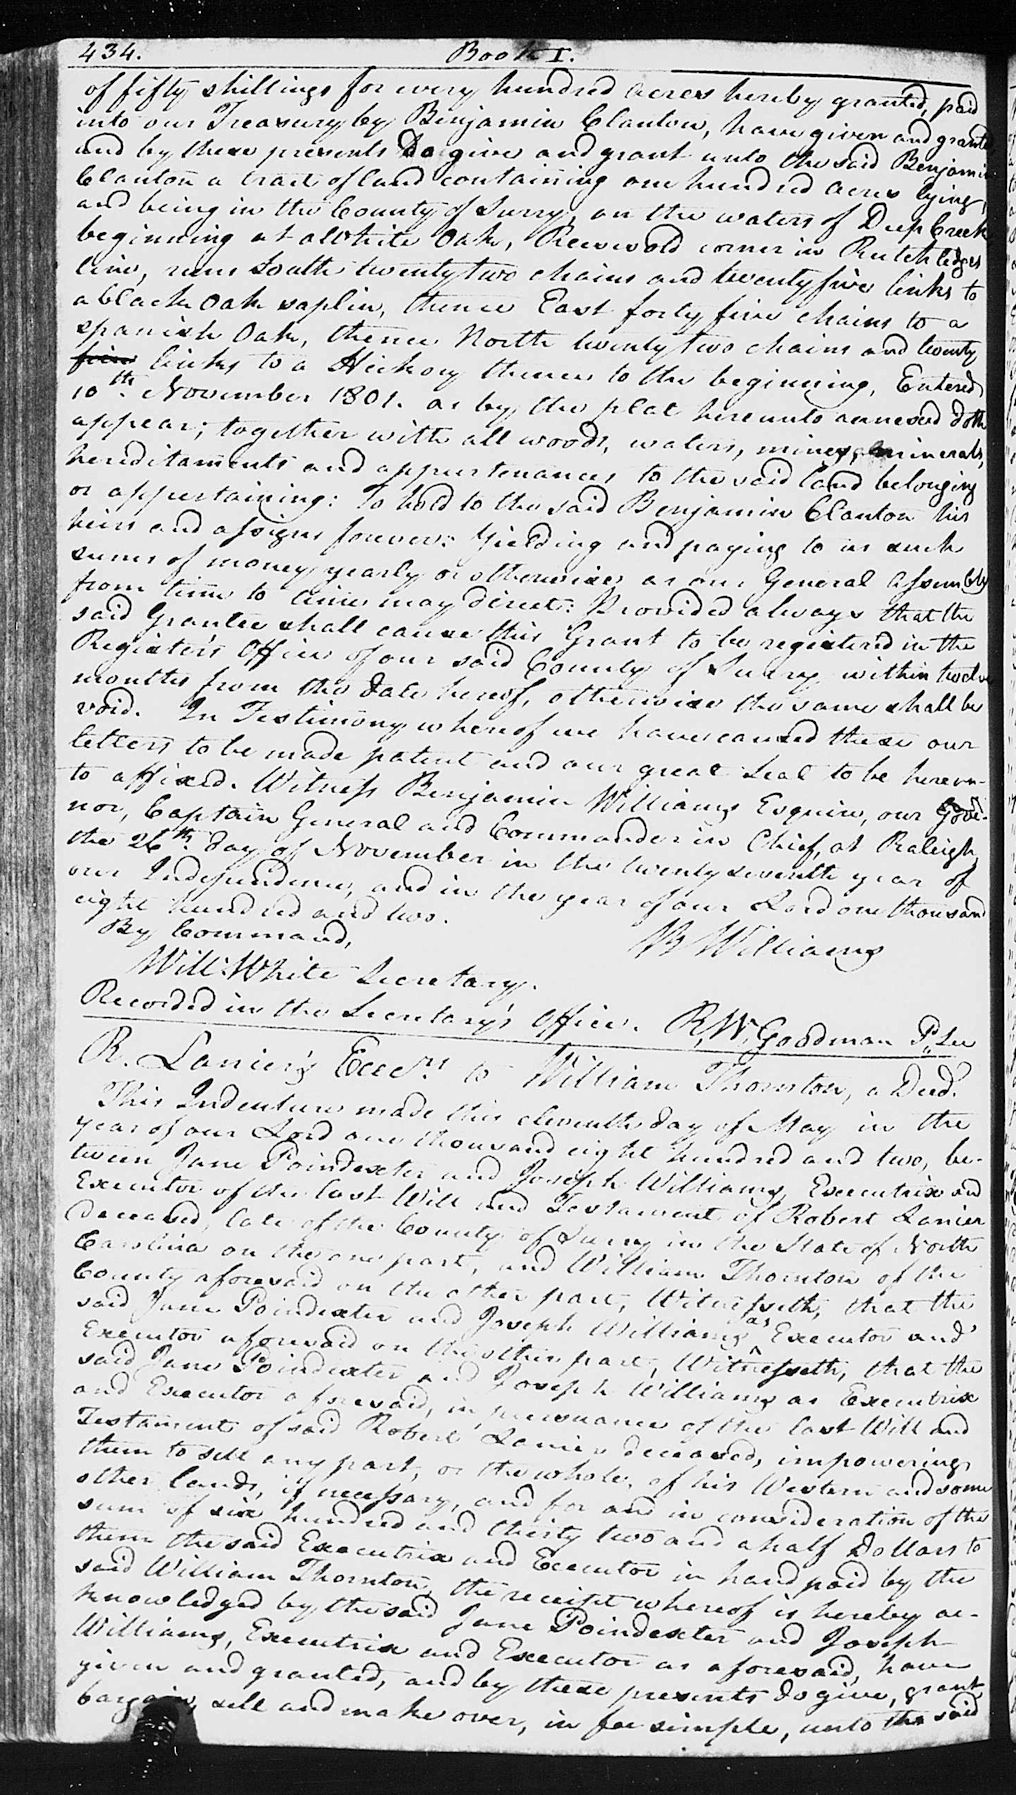 434.
Book I.
of fifty shillings for every hundred acres hereby granted, paid
into our Treasury by Benjamin Clanton, have given and granted
and by these presents Do give and grant unto the said Benjamin
Clanton a tract of land containing one hundred acres lying
and being in the County of Surry, on the waters of Deep Creek
beginning at a White Oak, corner in Rutchledges
line, runs South twenty two chains and twenty five links to
a black Oak saplin, thence East forty five chains to a
spanish Oak, thence North twenty two chains and twenty
five links to a Hickory thence to the beginning, Entered
10th. November 1801. as by the plat hereunto annexed doth
appear; together with all woods, waters, mines, minerals,
hereditaments and appurtenances, to the said land belonging
or appertaining: To hold to the said Benjamin Clanton his
heirs and assigns forever: Yielding and paying to us such
sums of money yearly or otherwise as our General Assembly
from time to time may direct: Provided always that the
said Grantee shall cause this Grant to be registered in the
Register's Office of our said County of Surry within twelve
months from the date hereof, otherwise the same shall be
void. In Testimony whereof we have caused these our
letters to be made patent and our great Seal to be hereun-
to affixed. Witness Benjamin Williams Esquire, our Gove-
nor, Captain General and Commander in Chief, at Raleigh,
the 26th. day of November in the twenty seventh year of
our Independence, and in the year of our Lord one thousand
eight hundred and two.
By Command,
B Williams
Will: White Secretary.
Recorded in the Secretary's Office. R, W, Goodman P, Sec
R. Lanier's Exec.rs to William Thornton, a Deed.
This Indenture made this eleventh day of May in the
year of our Lord one thousand eight hundred and two, be-
tween Jane Poindexter and Joseph Williams, Executrix and
Executor of the last Will and Testament of Robert Lanier
Deceased, late of the County of Surry in the State of North
Carolina on the one part, and William Thornton of the
County aforesaid on the other part, Witnesseth, that the
said Jane Poindexter and Joseph Williams as Executor and
Executor aforesaid on the other part, Witnesseth, that the
said Jane Poindexter and Joseph Williams as Executrix
and Executor aforesaid, in pursuance of the last Will and
Testament of said Robert Lanier deceased, impowering
them to sell any part, or the whole, of his Western and some
other lands, if necessary, and for and in consideration of the
sum of six hundred and thirty two and a half Dollars to
them the said Executrix and Executor in hand paid by the
said William Thornton, the receipt whereof is hereby ac-
knowledged by the said Jane Poindexter and Joseph
Williams, Executrix and Executor as aforesaid, have
given and granted, and by these presents do give, grant
bargain, sell and make over, in fee simple, unto the said